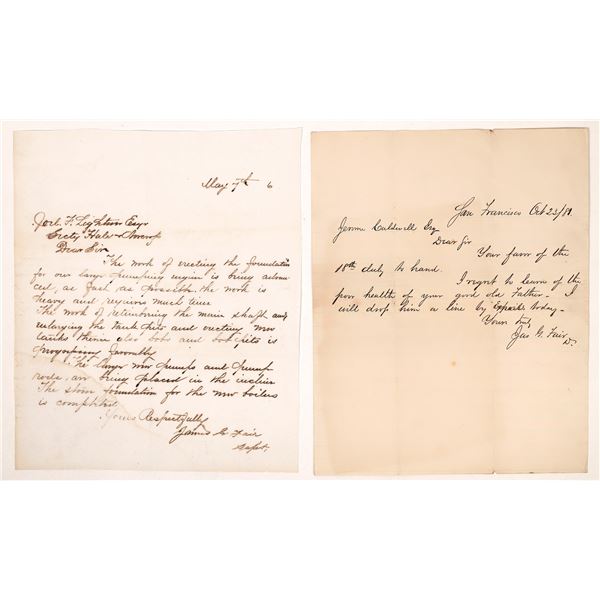 May 7th 6
Joel F. Lightner Esqr
Secty Hale & Norcross
Dear Sir
The work of erecting the foundation
for our large pumping engine is being advan
ced, as fast as possible the work is
heavy and requires much time
The work of retimbering the main shaft and
enlarging the tank sites and erecting new
tanks therein also bobs and bob pits is
progressing favorably
The large new pumps and pump
rods, are being placed in the incline
The stone foundation for the new boilers
is completed
Yours Respectfully
James G Fair
Supt.
San Francisco Oct 23/81.
Jerome Caldwell Esq
Dear Sir
Your favor of the
18th duly to hand.
I regret to learn of the
poor health of your good old Father - I
will drop him a line by Express today -
Yours truly
Jas G. Fair